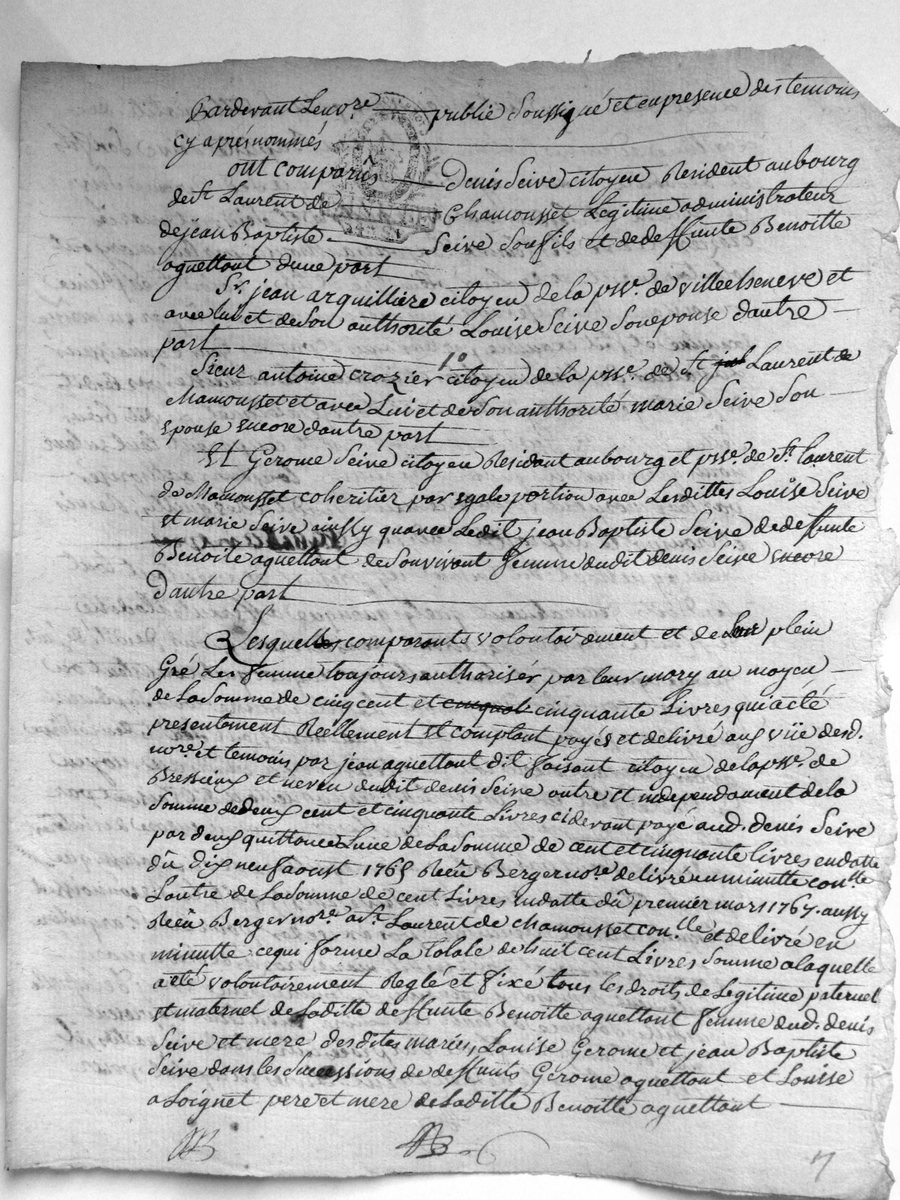 Pardevant Le no.re public Soussigné et en presence des temoins
cy après nommés
ont comparus Denis Seive citoyen Resident au bourg
de st Laurent de Chamousset Legitime administrateur
de jean Baptiste Seive Son fils et de deffunte Benoitte
aquettant dune part
Sr. jean arquillière citoyen de la psse. de villechenève et
avec lui et de Son authorité Louise Seive Son epouse dautre
part
1o
Sieur antoine crozier citoyen de la psse. de St Laurent de
Chamousset et avec Lui et de Son authorité marie Seive Son
epouse encore dautre part
Et Gerome Seive citoyen Residant au bourg et psse. de St. laurent
de Chamousset coheritier par egale portion avec Lesdittes Louise Seive
et marie Seive ainssy quavec Ledit jean Baptiste Seive de deffunte
Benoite aquettant de Son vivant femme dudit denis Seive encore
dautre part
Lesquels comparants volontairement et de Leur plein
Gré Les femme toujours authorisés par leur mary au moyen
de La Somme de cinq cent et cinquante Livres qui a eté
presentement Réellement et comptant payés et delivré aux vüe dud.
no.re et temoins par jean aquettant dit faisant citoyen de la psse. de
Bressieux et neveu dudit denis Seive outre et independament de la
Somme de deux cent et cinquante Livres cidevant payé aud. denis Seive
par deux quittances Lune de La Somme de cent et cinquante livres en datte
du dix neuf aoust 1765 Reçu Berger no.re delivré en minutte con.lle
Lautre de La Somme de cent Livres en datte du premier mars 1767. aussy
Reçu Berger no.re a St. Laurent de chamousset con.lle et delivré en
minutte ce qui forme La totale de huit cent Livres Somme a laquelle
a été volontairement Reglé et fixé tous les droits de Legitime paternel
et maternel de Laditte deffunte Benoitte aquettant femme dud. denis
Seive et mere des dites marie, Louise Gerome et jean Baptiste
Seive dans les Successions de deffunts Gerome aquettant et Louise
a Loignet pere et mere de Laditte Benoitte aquettant